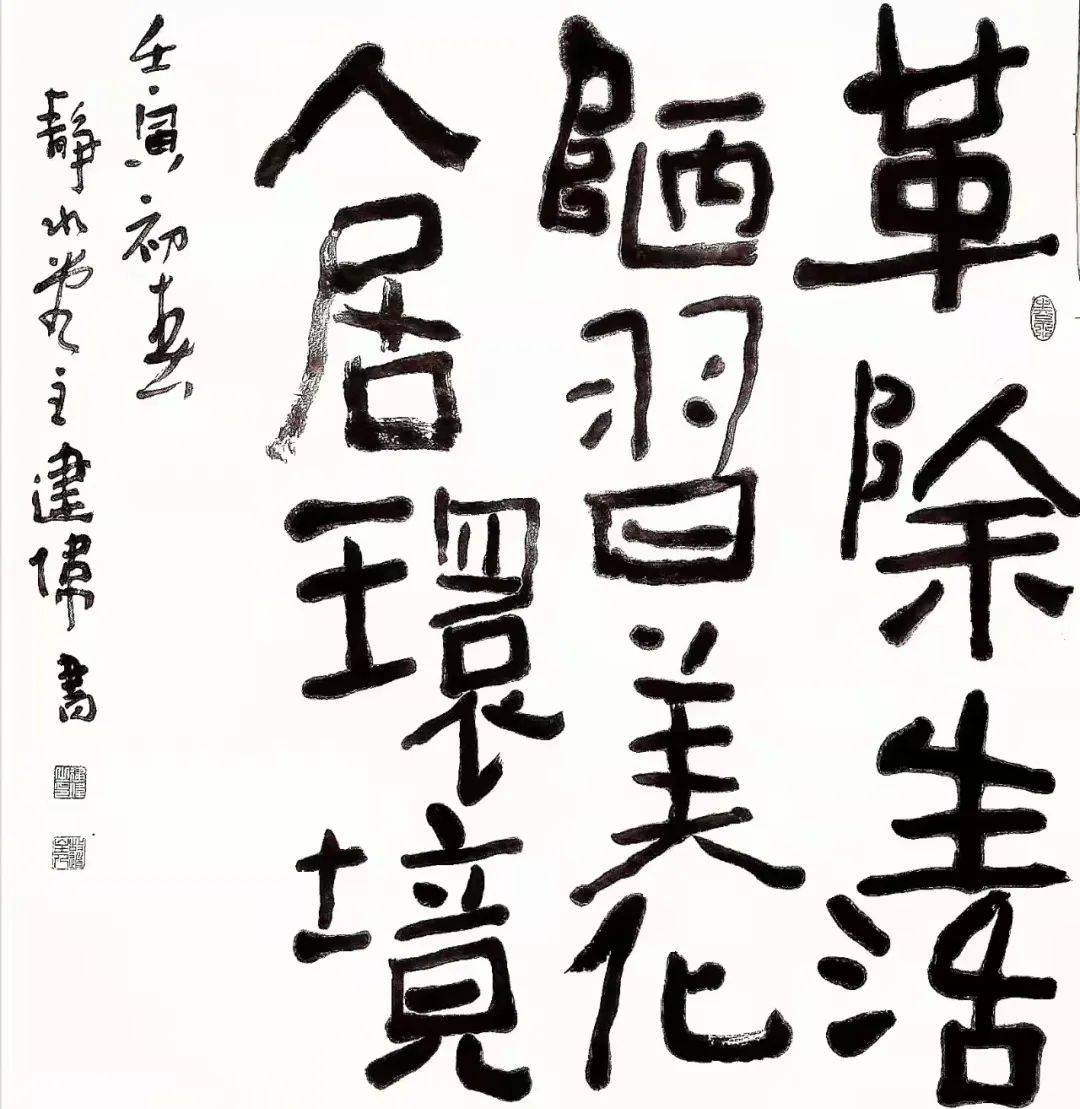 革除生活
陋習美化
人居環境
壬寅初春
靜水堂主建偉書